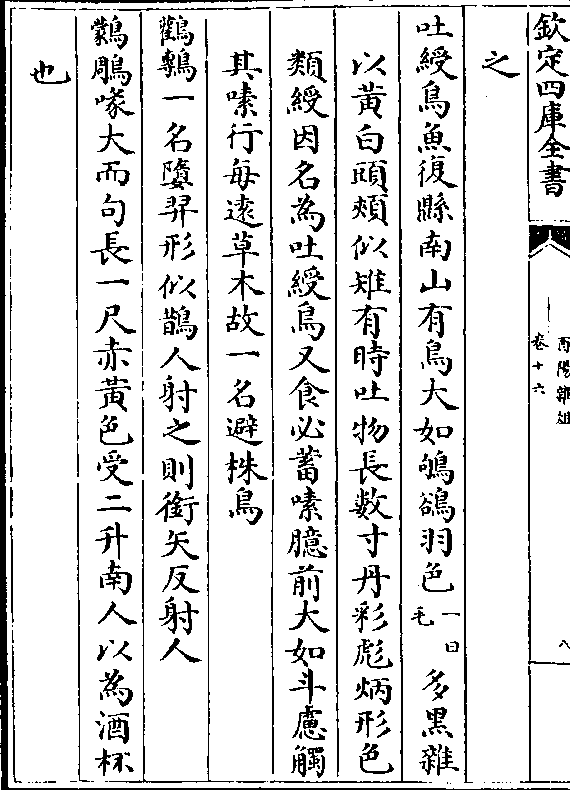 欽定四庫全書
酉陽雜俎
卷十六
八
之
吐綬鳥魚復縣南山有鳥大如鴝鵒羽色一曰毛多黑雜
以黃白頭頰似雉有時吐物長數寸丹彩彪炳形色
類綬因名為吐綬鳥又食必蓄嗉臆前大如斗慮觸
其嗉行每逺草木故一名避株鳥
鸛鷒一名䧿羿形似鵲人射之則銜矢反射人
鸏鶘喙大而句長一尺赤黃色受二升南人以為酒杯
也